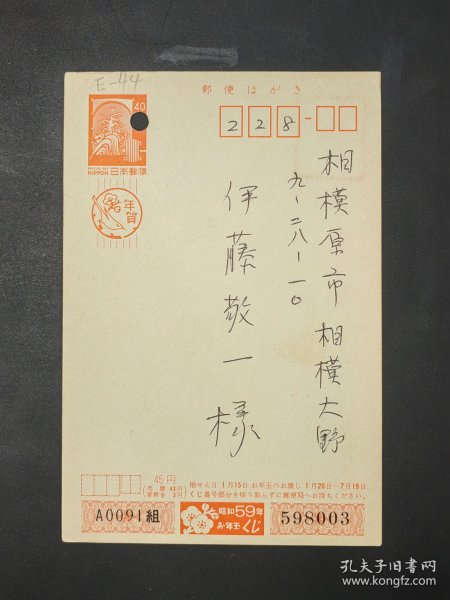 E-44
郵便はがき
40
NIPPON 日本郵便
年賀
228-
相模原市相模大野
九-二八-一〇
伊藤敬一様
45円
売価 42円
寄附金 3円
抽せん日 1月15日 お年玉のお渡し 1月20日-7月19日
くじ番号部分を切り取らずに郵便局へお持ちください。
A0091組
昭和59年
お年玉くじ
598003
孔夫子旧书网
www.kongfz.com